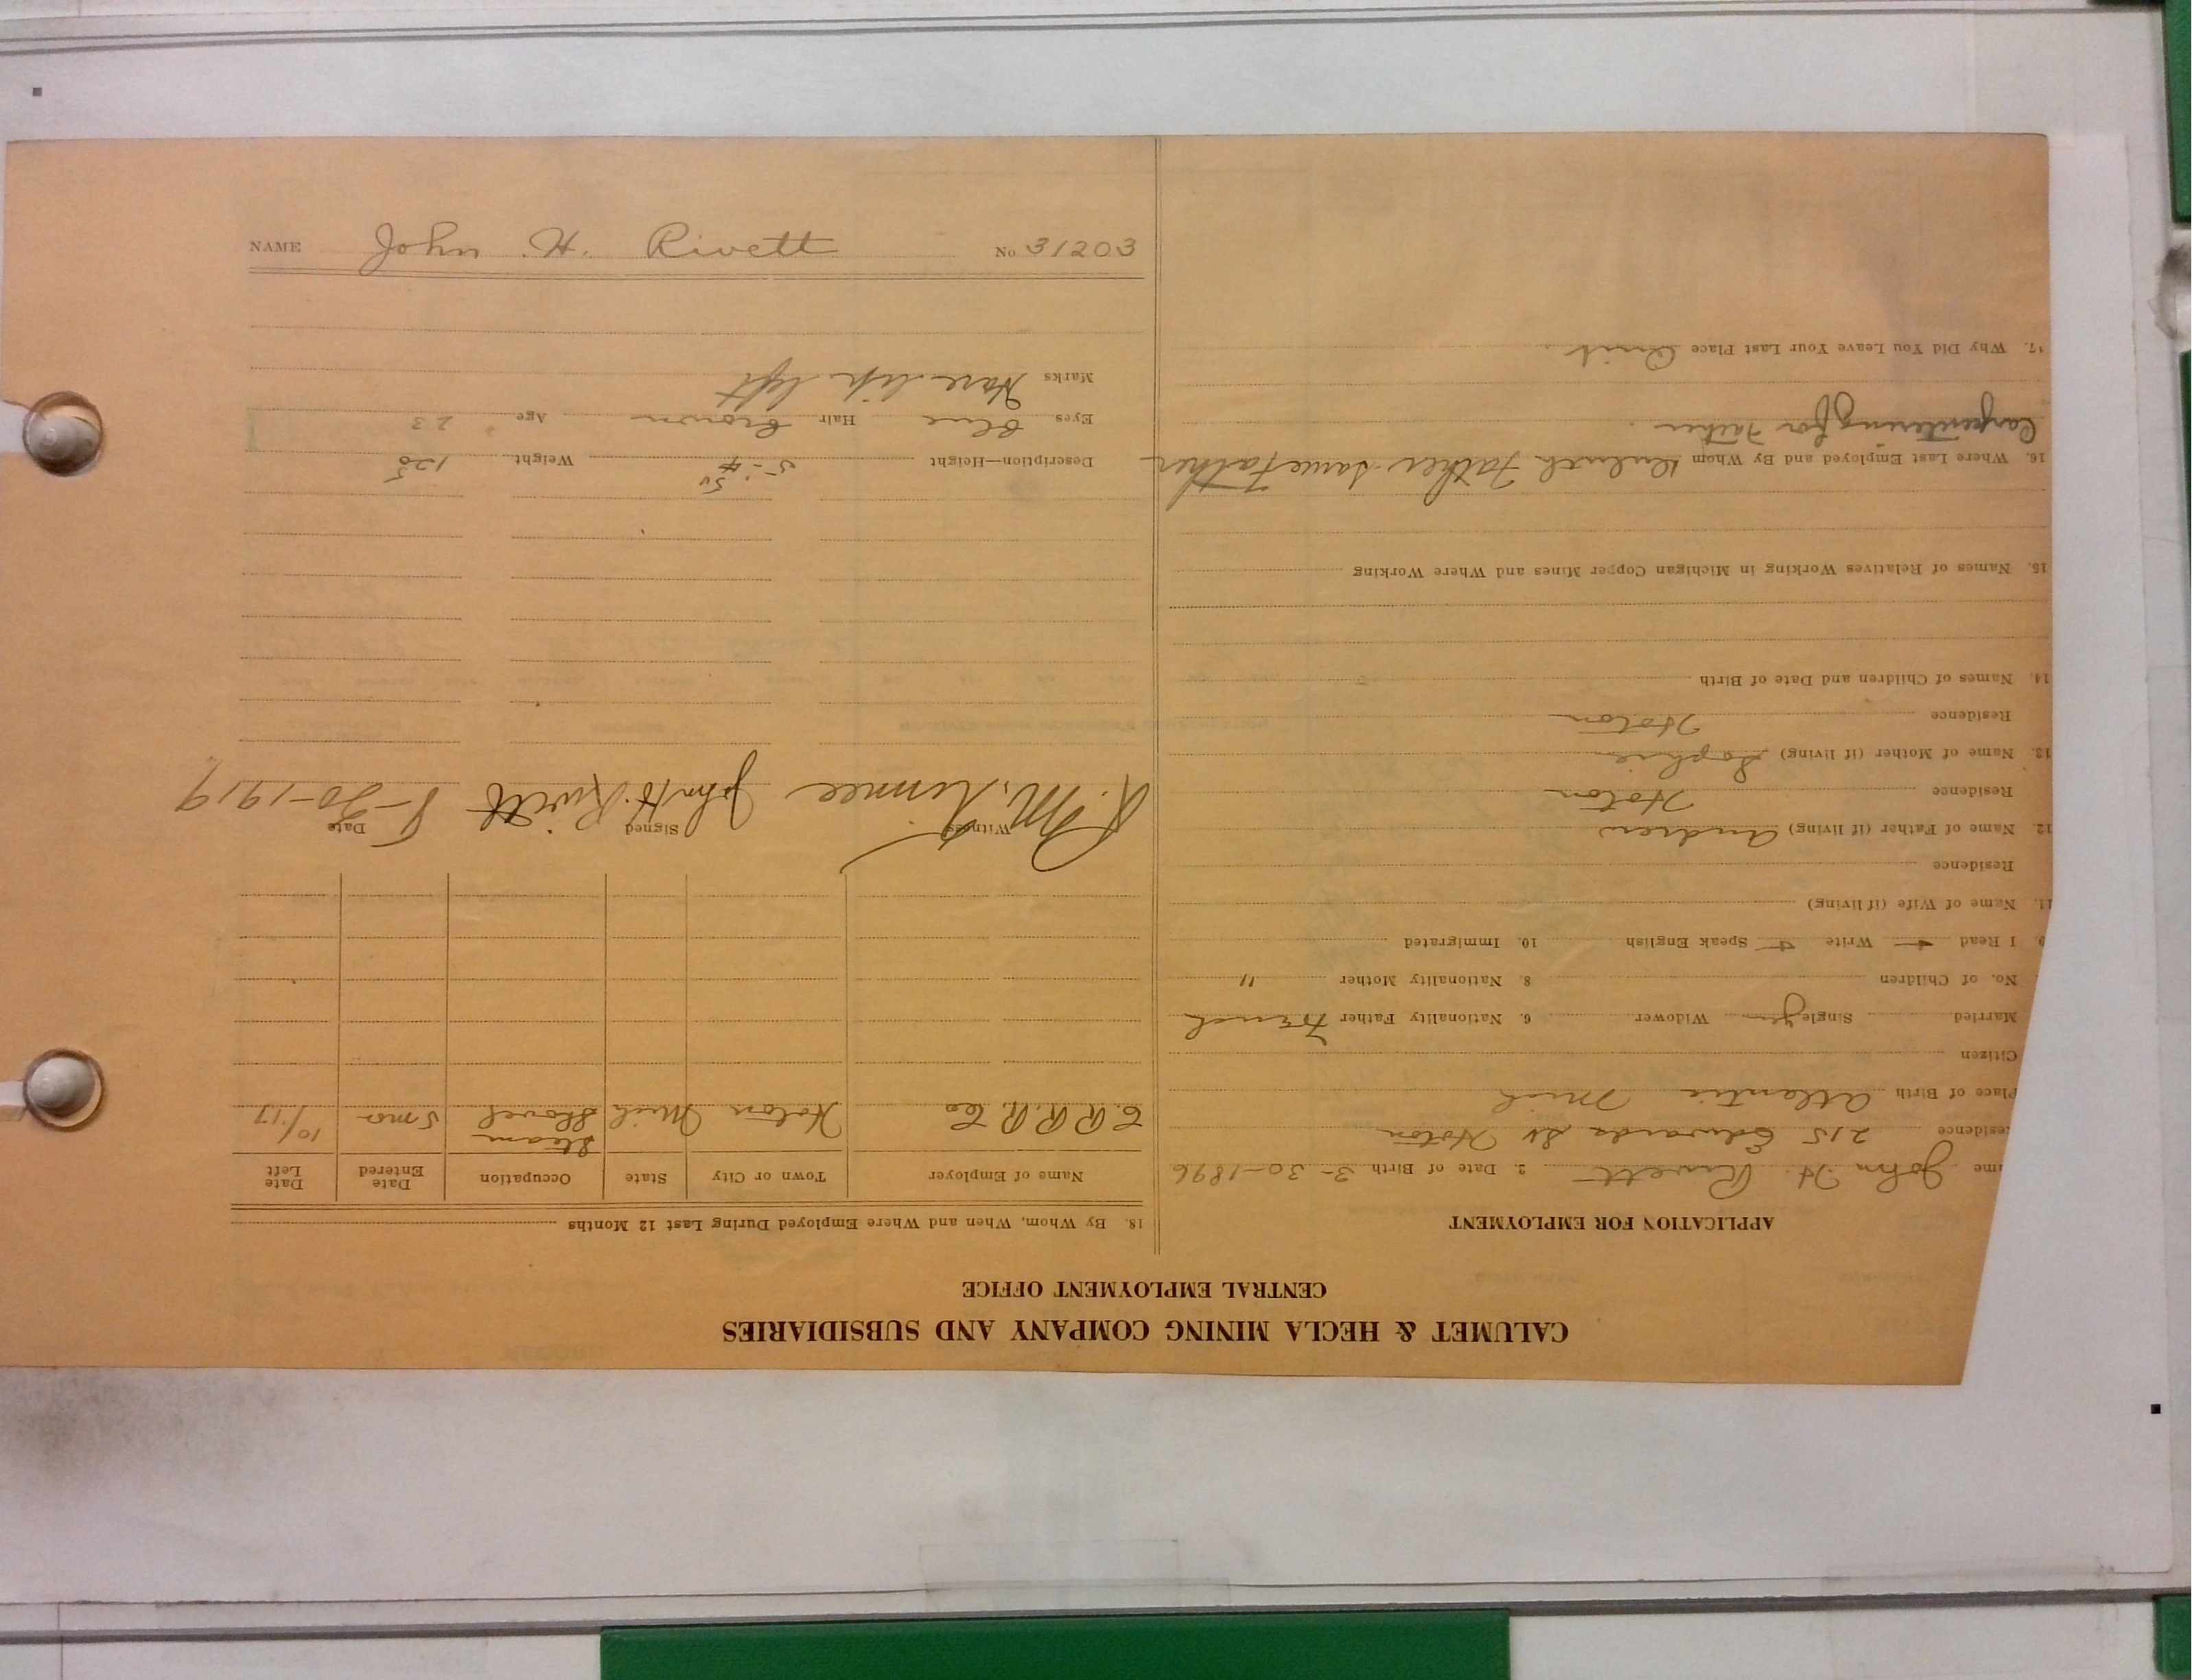 CALUMET & HECLA MINING COMPANY AND SUBSIDIARIES
CENTRAL EMPLOYMENT OFFICE
APPLICATION FOR EMPLOYMENT
me John H. Rivett 2. Date of Birth 3-30-1896
Residence 215 Edwards St Hoton
Place of Birth Atlantic Mich
Citizen
Married Single yes Widower 6. Nationality Father French
No. of Children 8. Nationality Mother "
9. I Read Write Speak English 10. Immigrated
11. Name of Wife (if living)
Residence
12. Name of Father (if living) Andrew
Residence Hoton
13. Name of Mother (if living) Sophie
Residence Hoton
14. Names of Children and Date of Birth
15. Names of Relatives Working in Michigan Copper Mines and Where Working
16. Where Last Employed and By Whom Duluth Father same Father
Carpentering for Father
17. Why Did You Leave Your Last Place Quit
18. By Whom, When and Where Employed During Last 12 Months
Name of Employer Town or City State Occupation Date Entered Date Left
C.R.R.R. Co Hoton Mich Steam Shovel 5 mo 10/17
Witness Signed Date
John H. Rivett 8-20-1919
Description—Height 5-4 Weight 125
Eyes Blue Hair Brown Age 23
Marks Hare lip left
NAME John H. Rivett No 31203